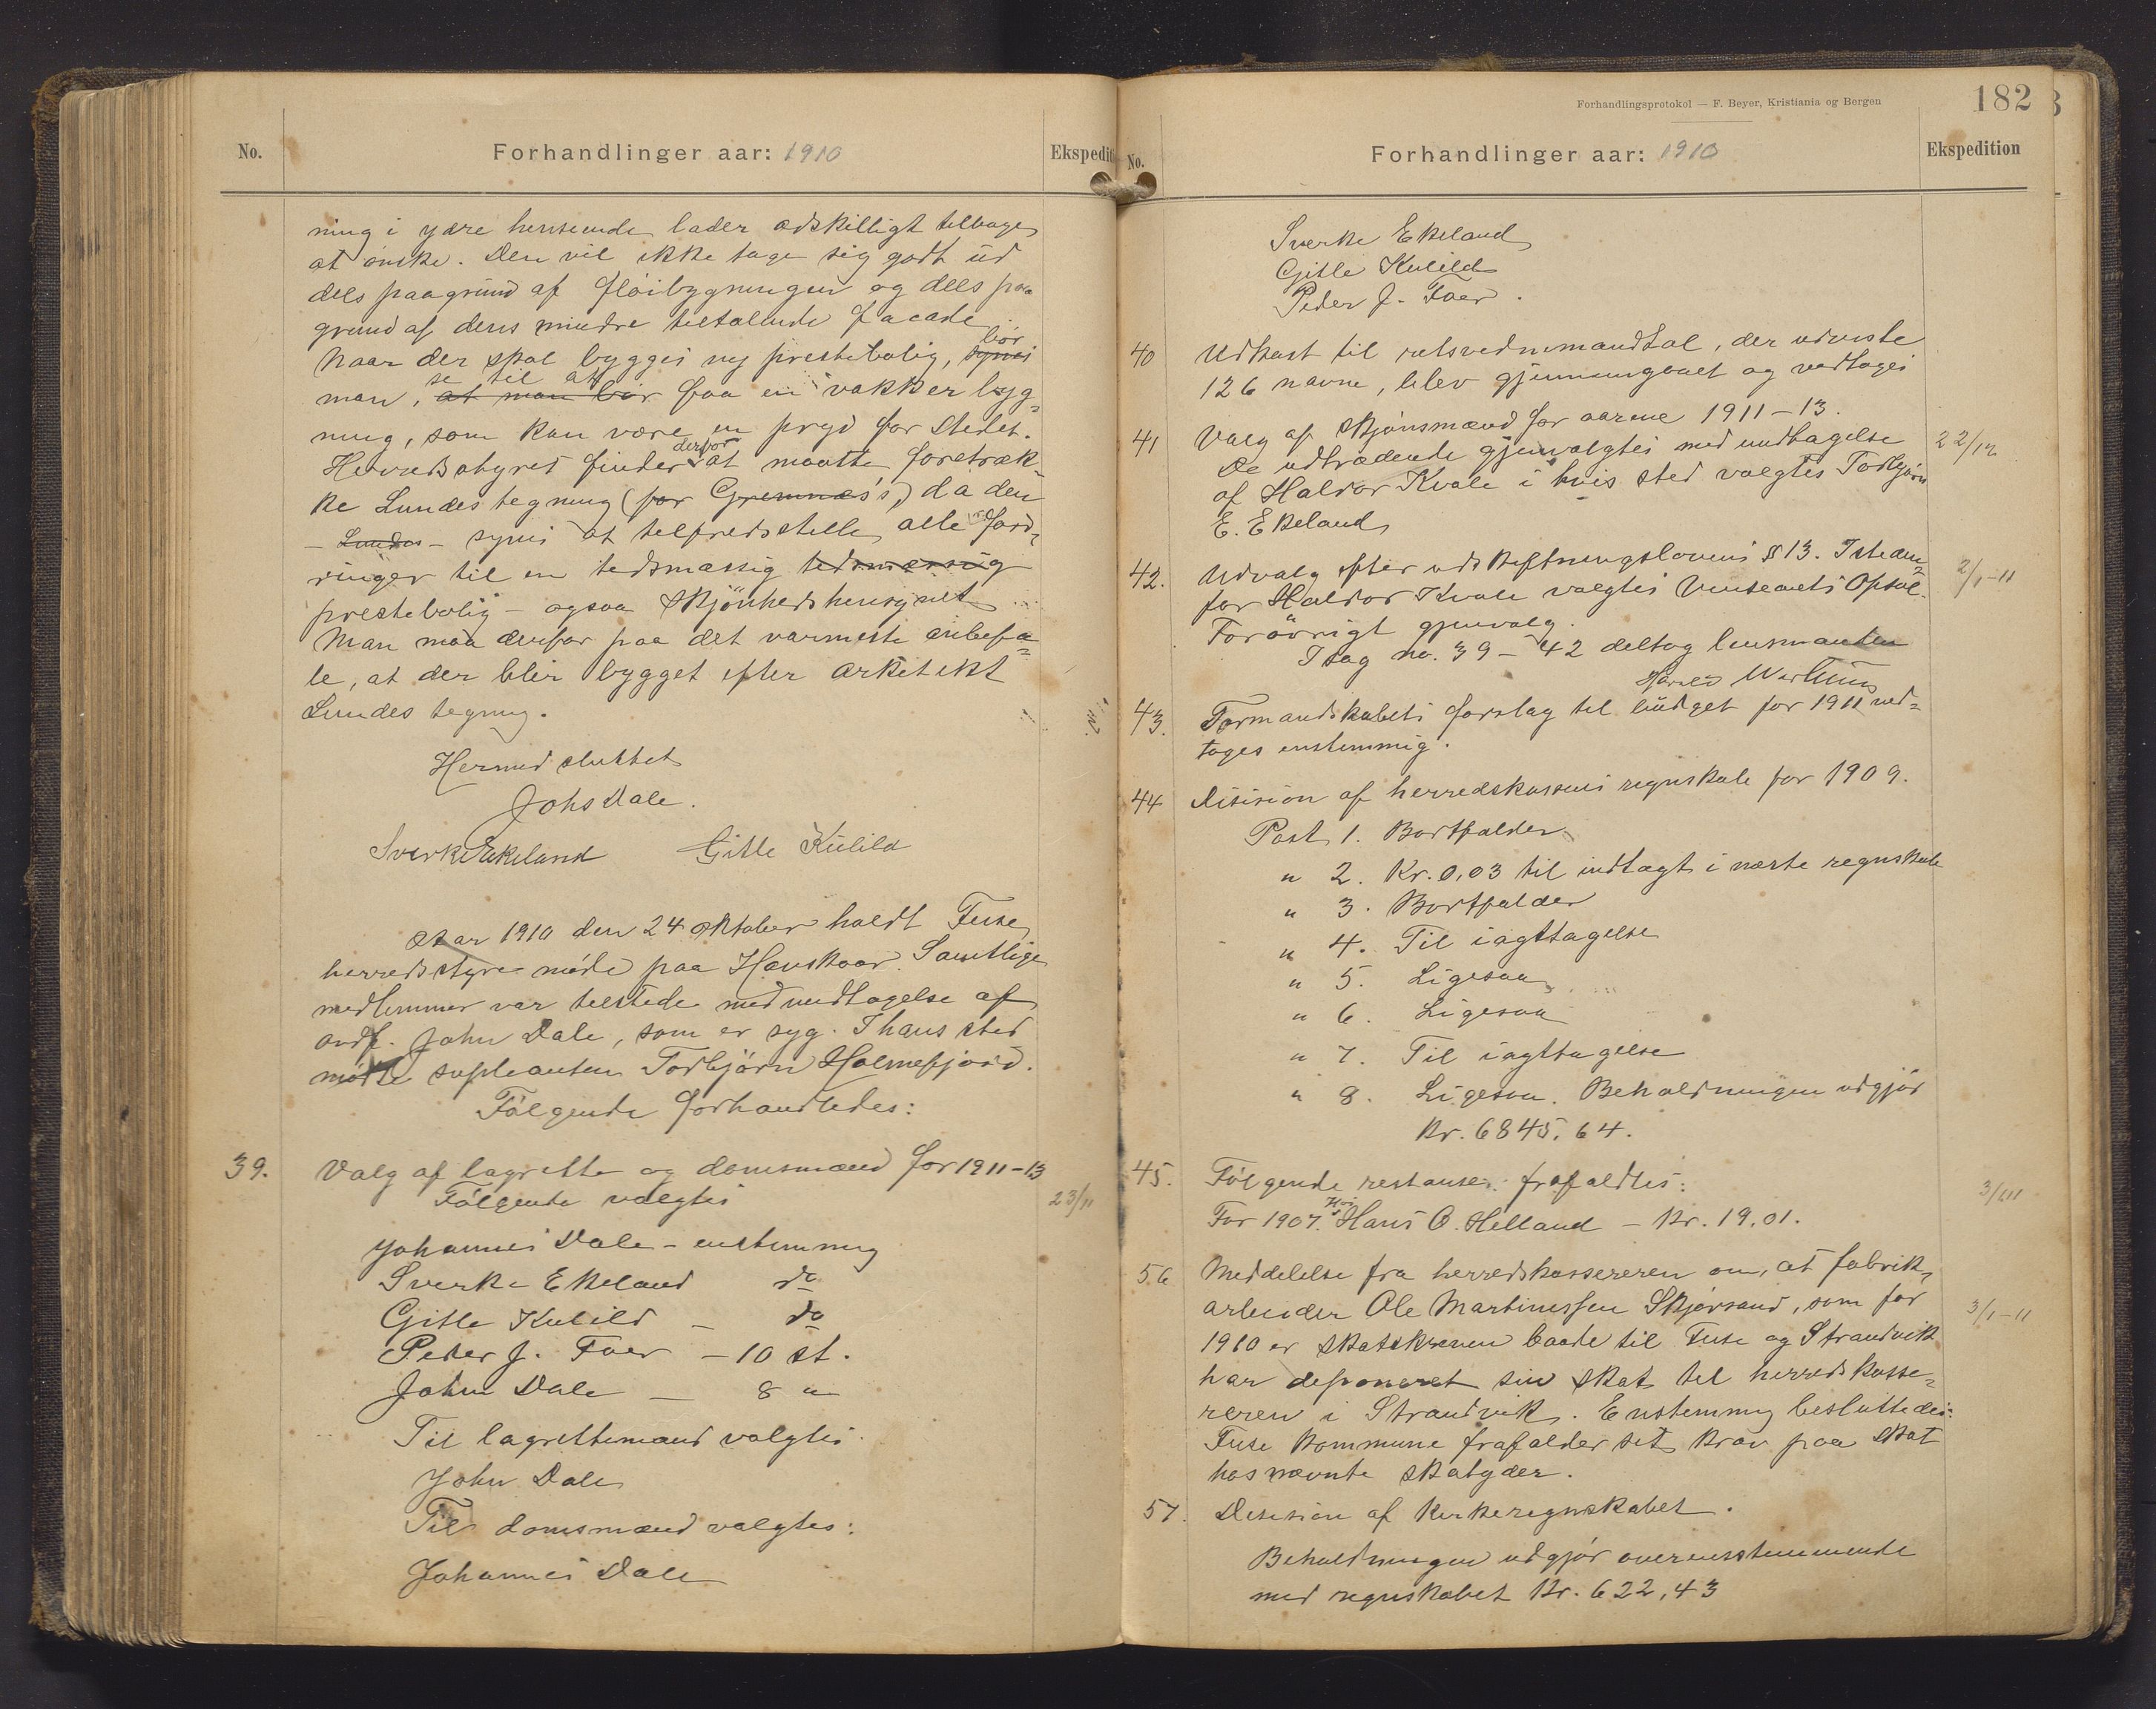 No.
Forhandlinger aar: 1910
Ekspedit
ning i ydre henseende lader adskilligt tilbage
at ønske. Den vil ikke tage sig godt ud
dels paagrund af fløibygningen og dels paa
grund af dens mindre tiltalende facade.
Naar der skal bygges ny prestebolig, synes bør
man, at man bør se til at faa en vakker byg=
ning, som kan være en pryd for stedet.
Herredsstyret finder derfor at maatte foretræk=
ke Lundes tegning (for Gremnæs's) da den
- Lundes - synes at tilfredsstille alle ford=
ringer til en tidsmæssig tidsmæssig
prestebolig - ogsaa skjønhedshensynet
Man maa derfor paa det varmeste anbefa=
le, at der blir bygget efter arkitekt
Lundes tegning.
Hermed sluttet
Johs Dale.
Sverke Ekeland Gitle Kulild
Aar 1910 den 24 oktober holdt Fuse
herredsstyre møde paa Havskaar. Samtlige
medlemmer var tilstede med undtagelse af
ordf. John Dale, som er syg. I hans sted
mødte supleanten Torbjørn Holmefjord.
Følgende forhandledes:
39. Valg af lagrette og domsmænd for 1911-13
Følgende valgtes
23/11
Johannes Dale - enstemmig
Sverke Ekeland do
Gitle Kulild - do
Peder J. Foer - 10 st.
John Dale - 8 "
Til lagrettemænd valgtes
John Dale
Til domsmænd valgtes:
Johannes Dale
Forhandlingsprotokol — F. Beyer, Kristiania og Bergen
182
No.
Forhandlinger aar: 1910
Ekspedition
Sverke Ekeland
Gitle Kulild
Peder J. Foer.
40 Udkast til retsvidnemandtal, der udviste
126 navne, blev gjennemgaaet og vedtoges
41 Valg af skjønsmænd for aarene 1911-13.
De udtrædende gjenvalgtes med undtagelse 22/12
af Haldor Kvale i hvis sted valgtes Torbjørn
E. Ekeland
42. Udvalg efter udskiftningslovens § 13. Isteden= 2/1-11
for Haldor Kvale valgtes Vinseents Opsal.
Forøvrigt gjenvalg.
I sag no. 39 - 42 deltog lensmanden
43. Formandskabets forslag til budget for 1911 ved=
toges enstemmig.
44 Desision af herredskassens regnskab for 1909.
Post 1. Bortfalder
" 2. Kr. 0,03 til indtægt i næste regnskab
" 3. Bortfalder
" 4. Til iagttagelse
" 5. Ligesaa
" 6. Ligesaa
" 7. Til iagttagelse
" 8. Ligesaa. Beholdningen udgjør
Kr. 6845,64.
45. Følgende restanser frafaldtes: 3/1 11
For 1907. Hos Hans O. Helland - Kr. 19.01.
56 Meddelelse fra herredskassereren om, at fabrik=
arbeider Ole Martinessen Skjørsand, som for 3/1-11
1910 er skatskreven baade til Fuse og Strandvik
har deponeret sin skat til herredskasse=
reren i Strandvik. Enstemmig besluttedes:
Fuse kommune frafalder sit krav paa skat
hos nævnte skatyder.
57. Desision af kirkeregnskabet.
Beholdningen udgjør overensstemmende
med regnskabet Kr. 622,43